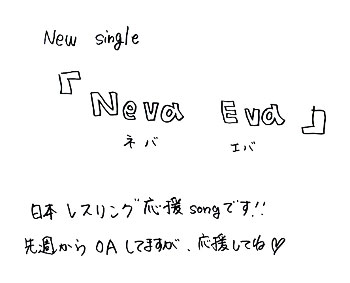 New single
『Neva Eva』
ネバ エバ
日本レスリング応援songです!!
先週からOAしてますが、応援してね♡